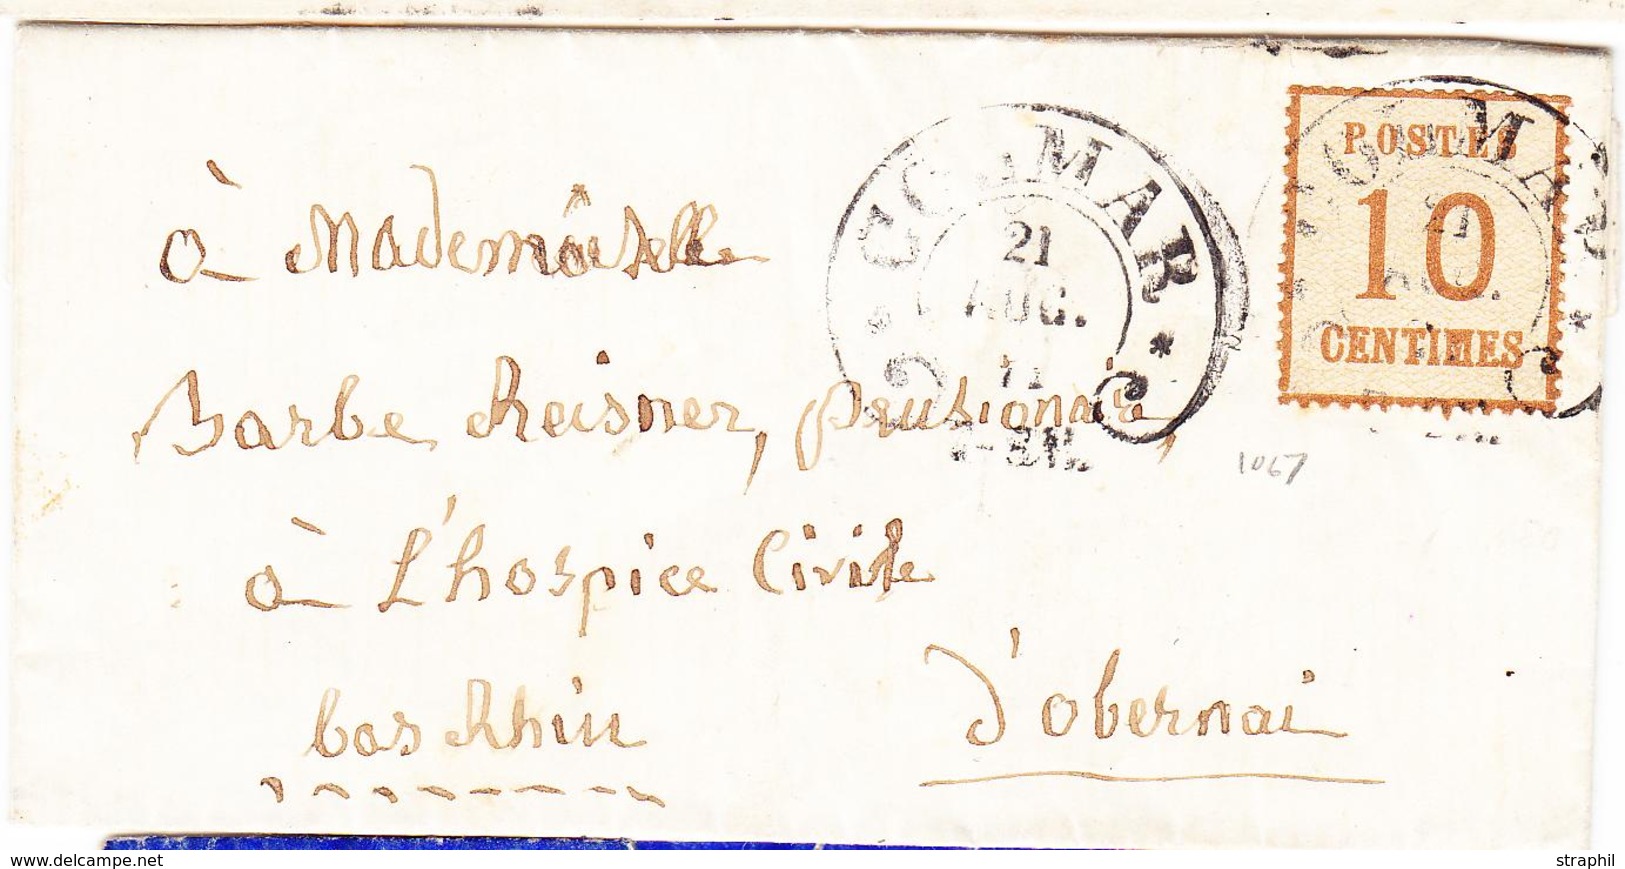 COLMAR
21
AUG.
71
POSTES
10
CENTIMES
COLMAR
21
AUG.
à Mademoiselle
Barbe Reisner, pensionair,
1067
à L'hospice Civile
d'obernai
bas Rhin
www.delcampe.net
straphil